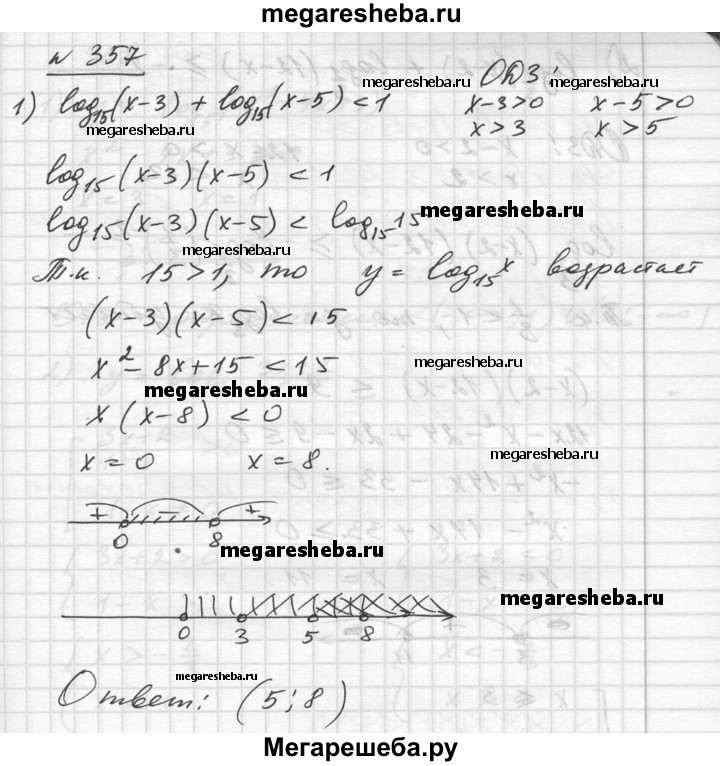 megaresheba.ru
№ 357
1) log₁₅(x-3) + log₁₅(x-5) < 1
ОДЗ:
x-3>0 x-5>0
x>3 x>5
megaresheba.ru
megaresheba.ru
megaresheba.ru
log₁₅(x-3)(x-5) < 1
log₁₅(x-3)(x-5) < log₁₅15
megaresheba.ru
megaresheba.ru
Т.к. 15>1, то y = log₁₅x возрастает
(x-3)(x-5)<15
x²-8x+15<15
megaresheba.ru
megaresheba.ru
x(x-8)<0
x=0 x=8.
megaresheba.ru
+ - +
0 8
megaresheba.ru
megaresheba.ru
0 3 5 8
megaresheba.ru
Ответ: (5;8)
Мегарешеба.ру